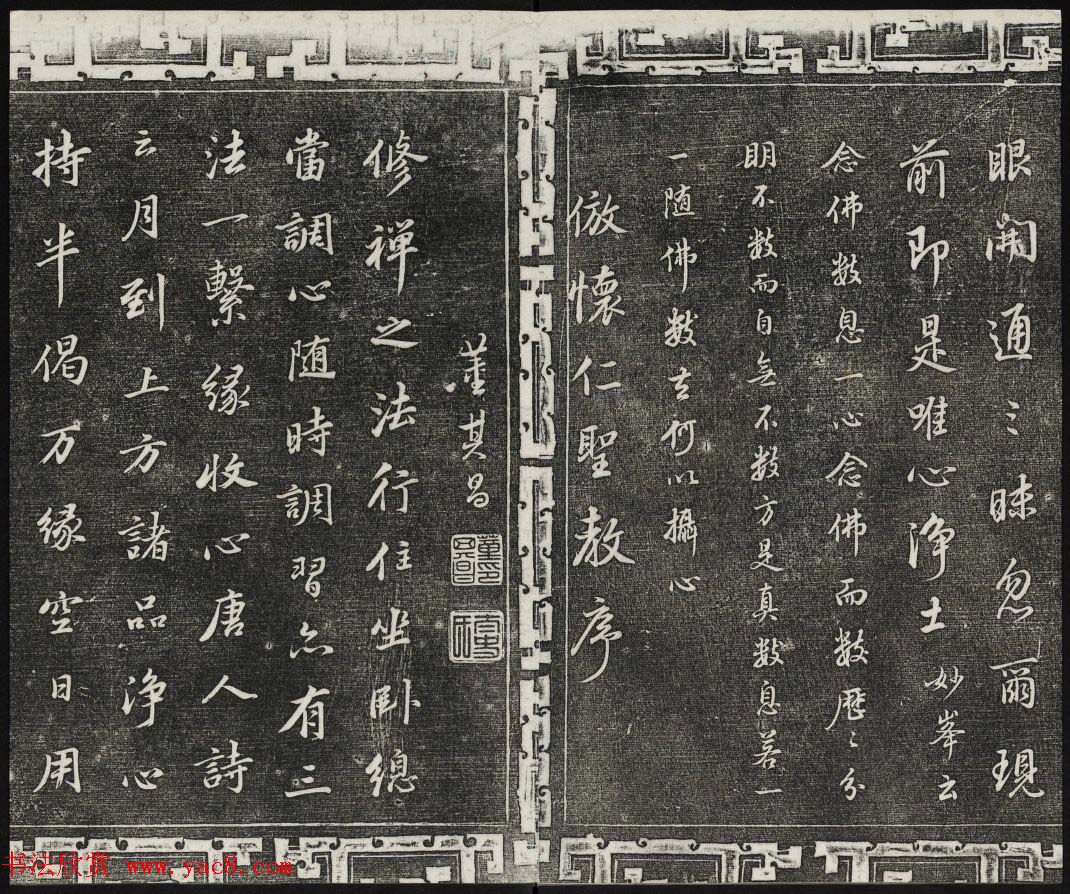 眼開通〻昧忽爾現
前即是唯心浄土妙峯云
念佛數息一心念佛而數歷〻分
明不數而自無不數方是真數息若一
一随佛數去何以攝心
倣懷仁聖教序
董其昌
董其昌印
修禅之法行住坐卧總
當調心随時調習亦有三
法一繫緣收心唐人詩
云月到上方諸品浄心
持半偈万緣空日用
书法欣赏 www.yac8.com